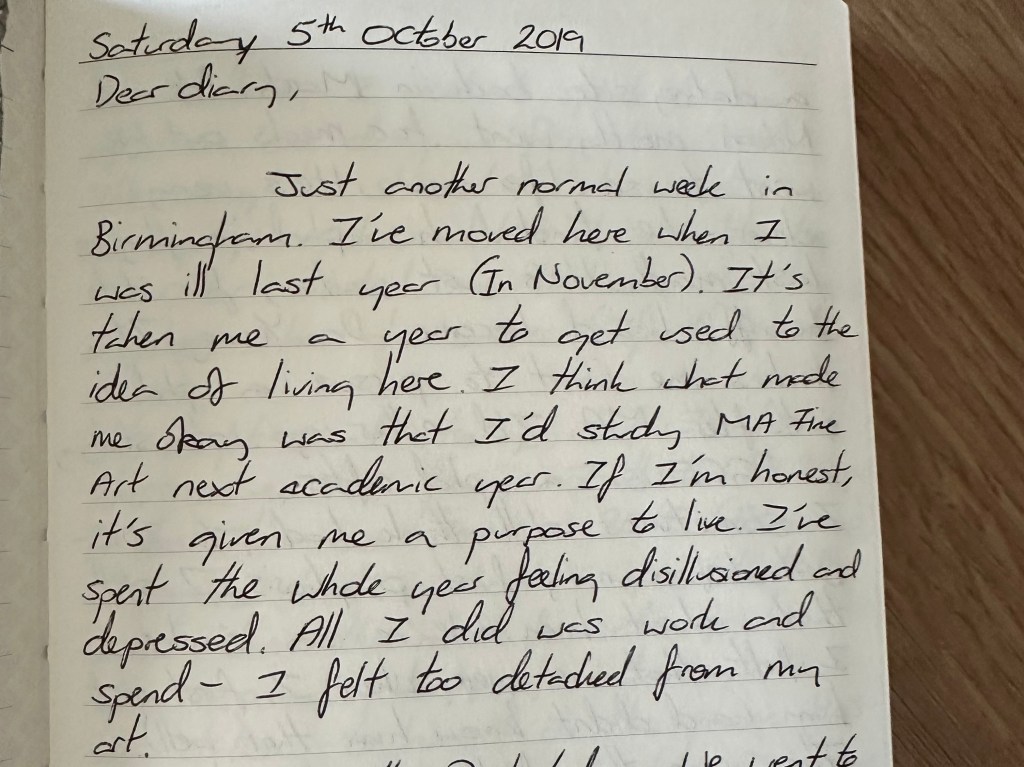 Saturday 5th October 2019
Dear diary,
Just another normal week in
Birmingham. I've moved here when I
was ill last year (In November). It's
taken me a year to get used to the
idea of living here. I think what made
me okay was that I'd study MA Fine
Art next academic year. If I'm honest,
it's given me a purpose to live. I've
spent the whole year feeling disillusioned and
depressed. All I did was work and
spend - I felt too detached from my
art.
went to